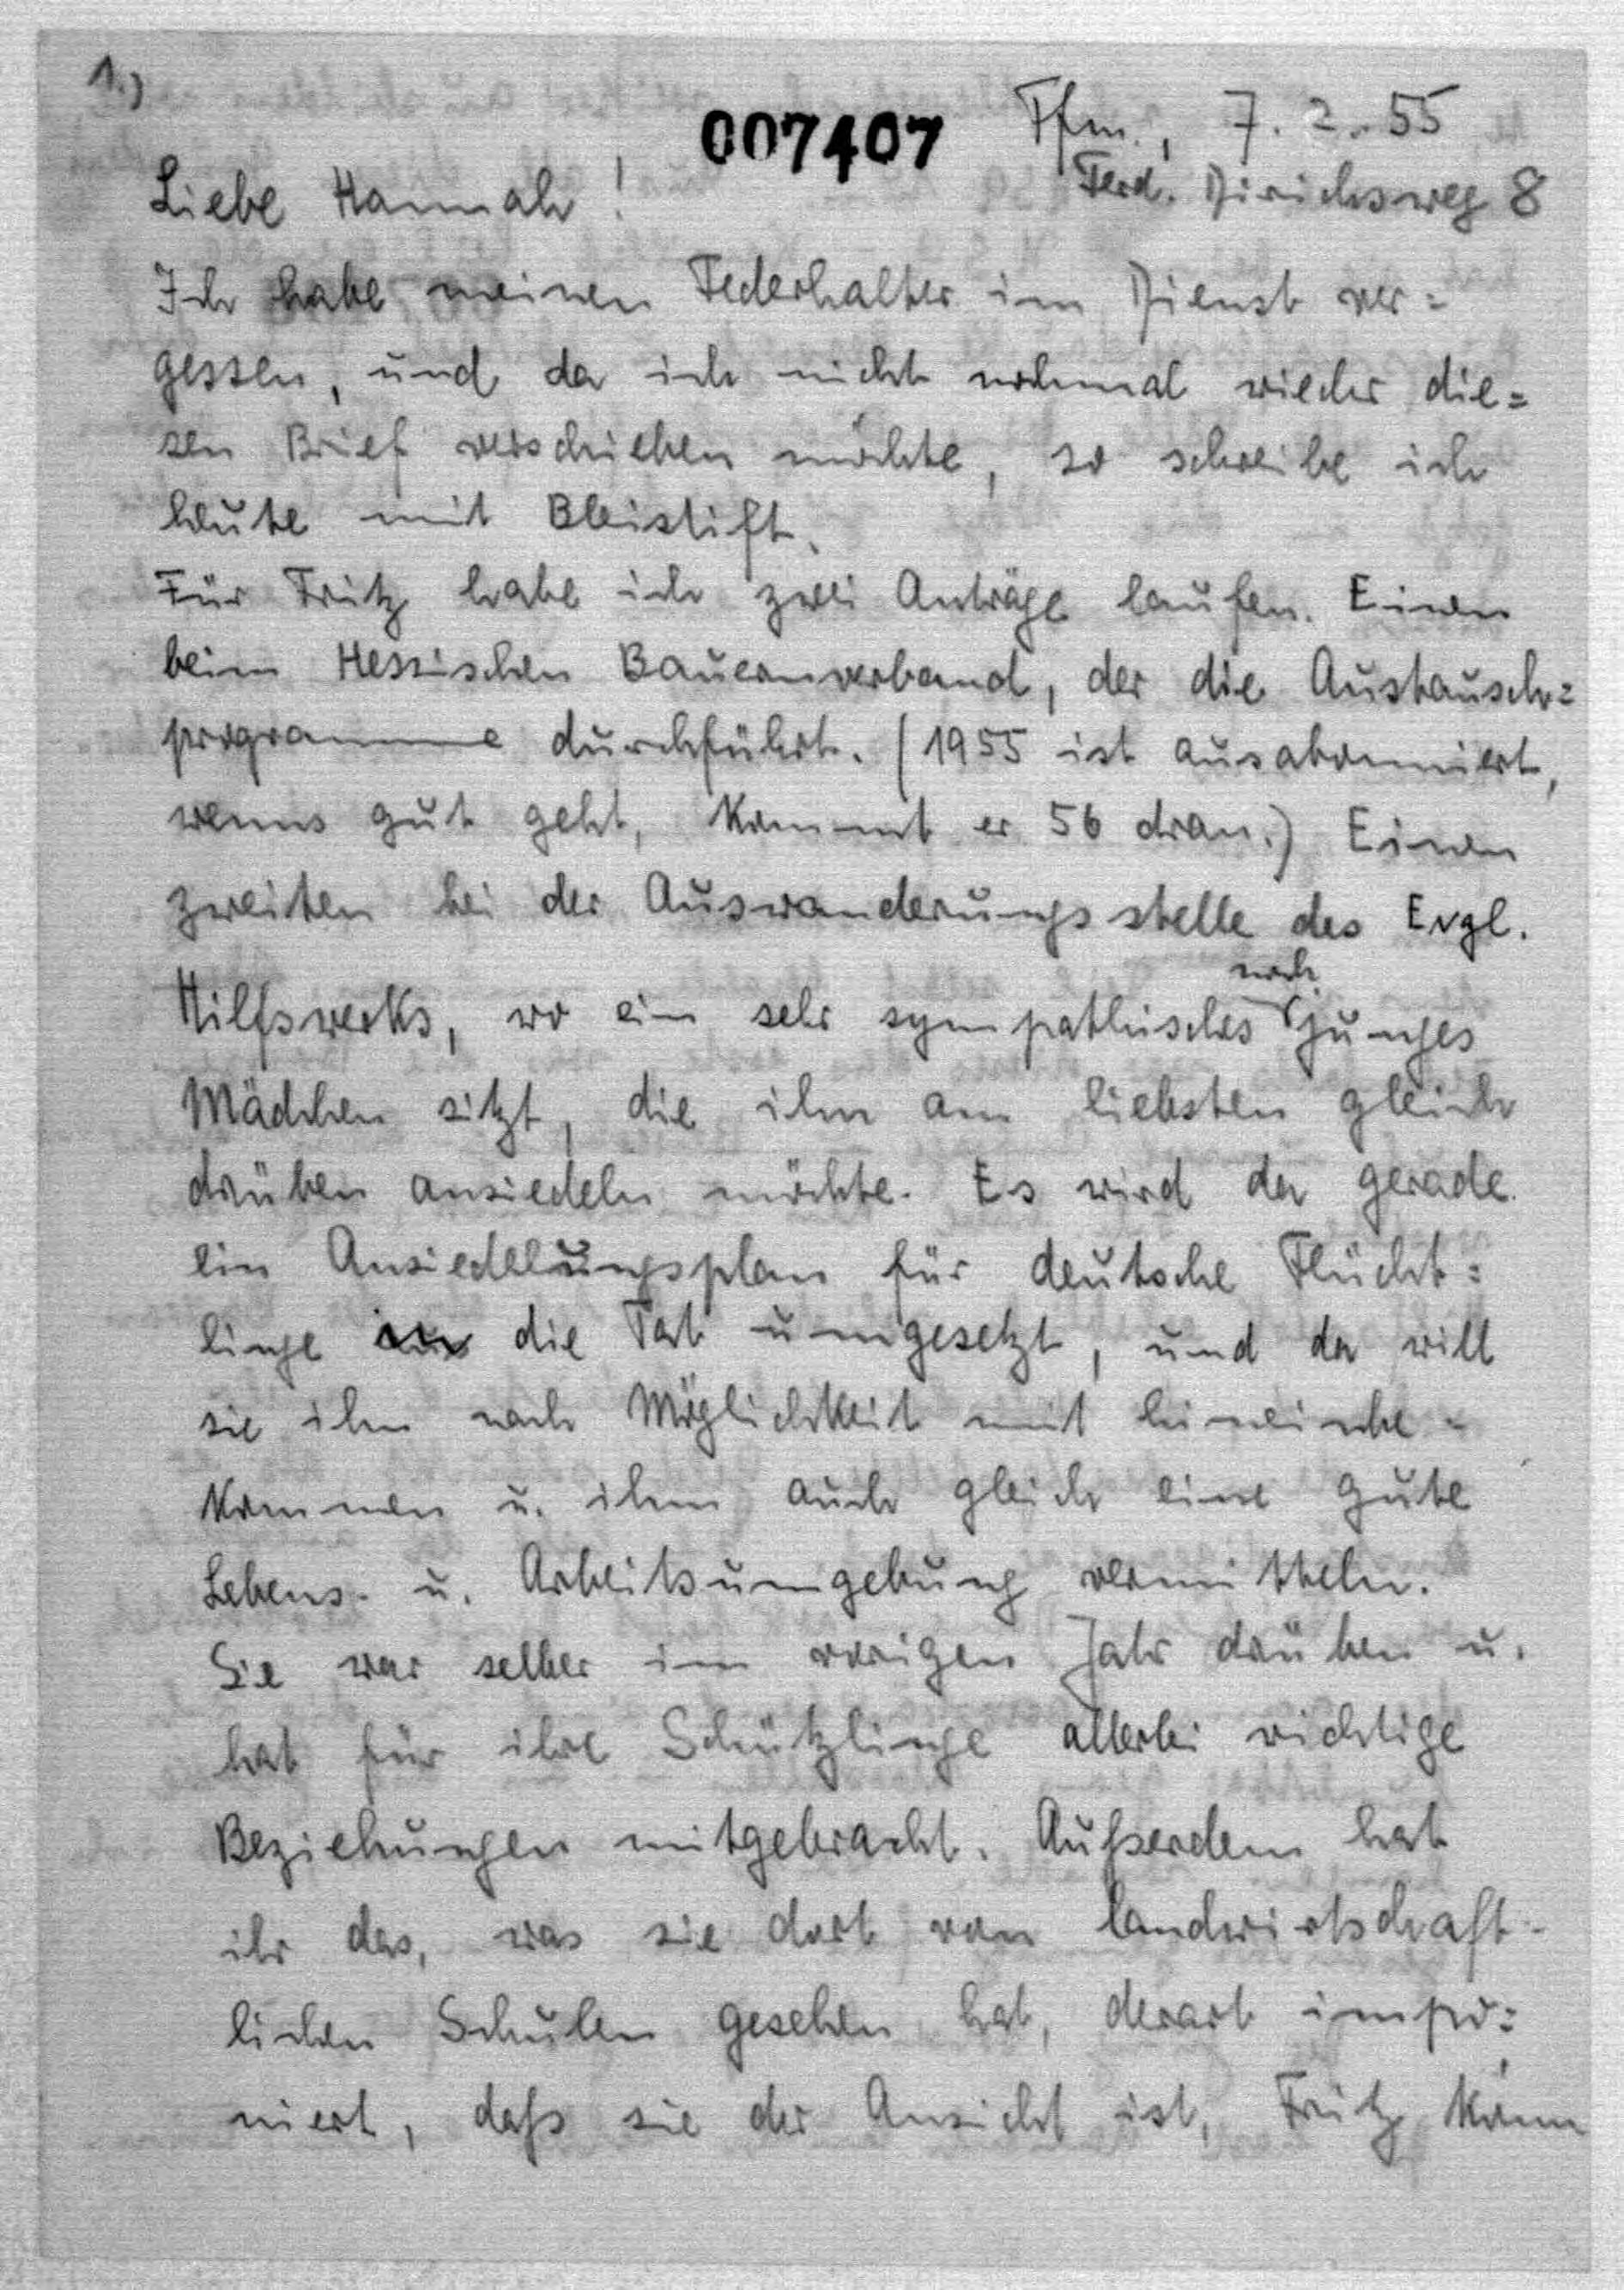 1.)
007407
Ffm., 7. 2. 55
Ferd. Dirichsweg 8
Liebe Hannah!
Ich habe meinen Federhalter im Dienst ver=
gessen, und da ich nicht nochmal wieder die=
sen Brief verschieben möchte, so schreibe ich
heute mit Bleistift.
Für Fritz habe ich zwei Anträge laufen. Einen
beim Hessischen Bauernverband, der die Austausch=
programme durchführt. (1955 ist ausabonniert,
wenns gut geht, kommt er 56 dran.) Einen
zweiten bei der Auswanderungsstelle des Evgl.
noch
Hilfswerks, wo ein sehr sympathisches junges
Mädchen sitzt, die ihn am liebsten gleich
drüben ansiedeln möchte. Es wird da gerade
ein Ansiedelungsplan für deutsche Flücht=
linge in die Tat umgesetzt, und da will
sie ihn nach Möglichkeit mit hineinbe=
kommen u. ihm auch gleich eine gute
Lebens- u. Arbeitsumgebung vermitteln.
Sie war selber im vorigen Jahr drüben u.
hat für ihre Schützlinge allerlei wichtige
Beziehungen mitgebracht. Außerdem hat
ihr das, was sie dort von landwirtschaft-
lichen Schulen gesehen hat, derart impo=
niert, daß sie der Ansicht ist, Fritz könn